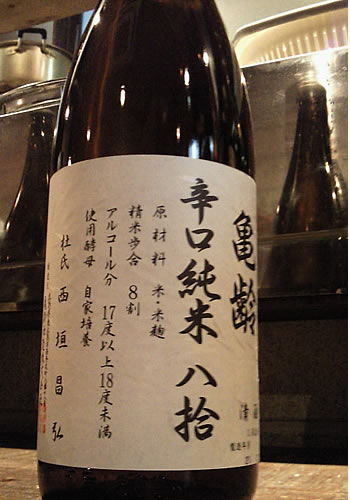 亀齢
辛口純米 八拾
原材料 米・米麹
精米歩合 8割
アルコール分 17度以上18度未満
使用酵母 自家培養
杜氏 西垣昌弘